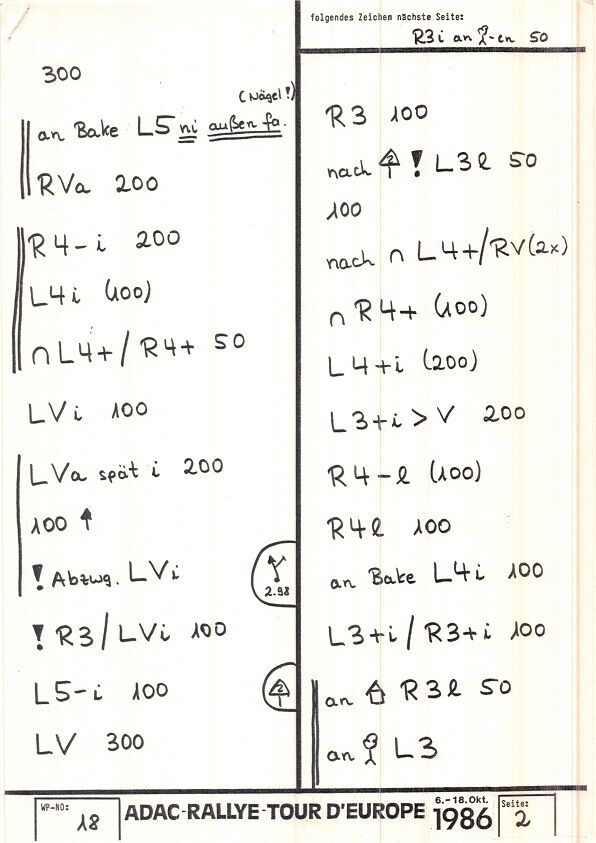 folgendes Zeichen nächste Seite:
R3i an -en 50
300
(Nägel!)
an Bake L5 ni außen fa.
RVa 200
R4-i 200
L4i (100)
∩ L4+/R4+ 50
LVi 100
LVa spät i 200
100 ↑
! Abzwg. LVi
2.98
! R3/LVi 100
L5-i 100
2
LV 300
R3 100
nach 2 ! L3l 50
100
nach ∩ L4+/RV(2x)
∩ R4+ (100)
L4+i (200)
L3+i > V 200
R4-l (100)
R4l 100
an Bake L4i 100
L3+i/R3+i 100
an R3l 50
an L3
WP-NO: 18
ADAC-RALLYE-TOUR D'EUROPE
6.-18.Okt. 1986
Seite: 2